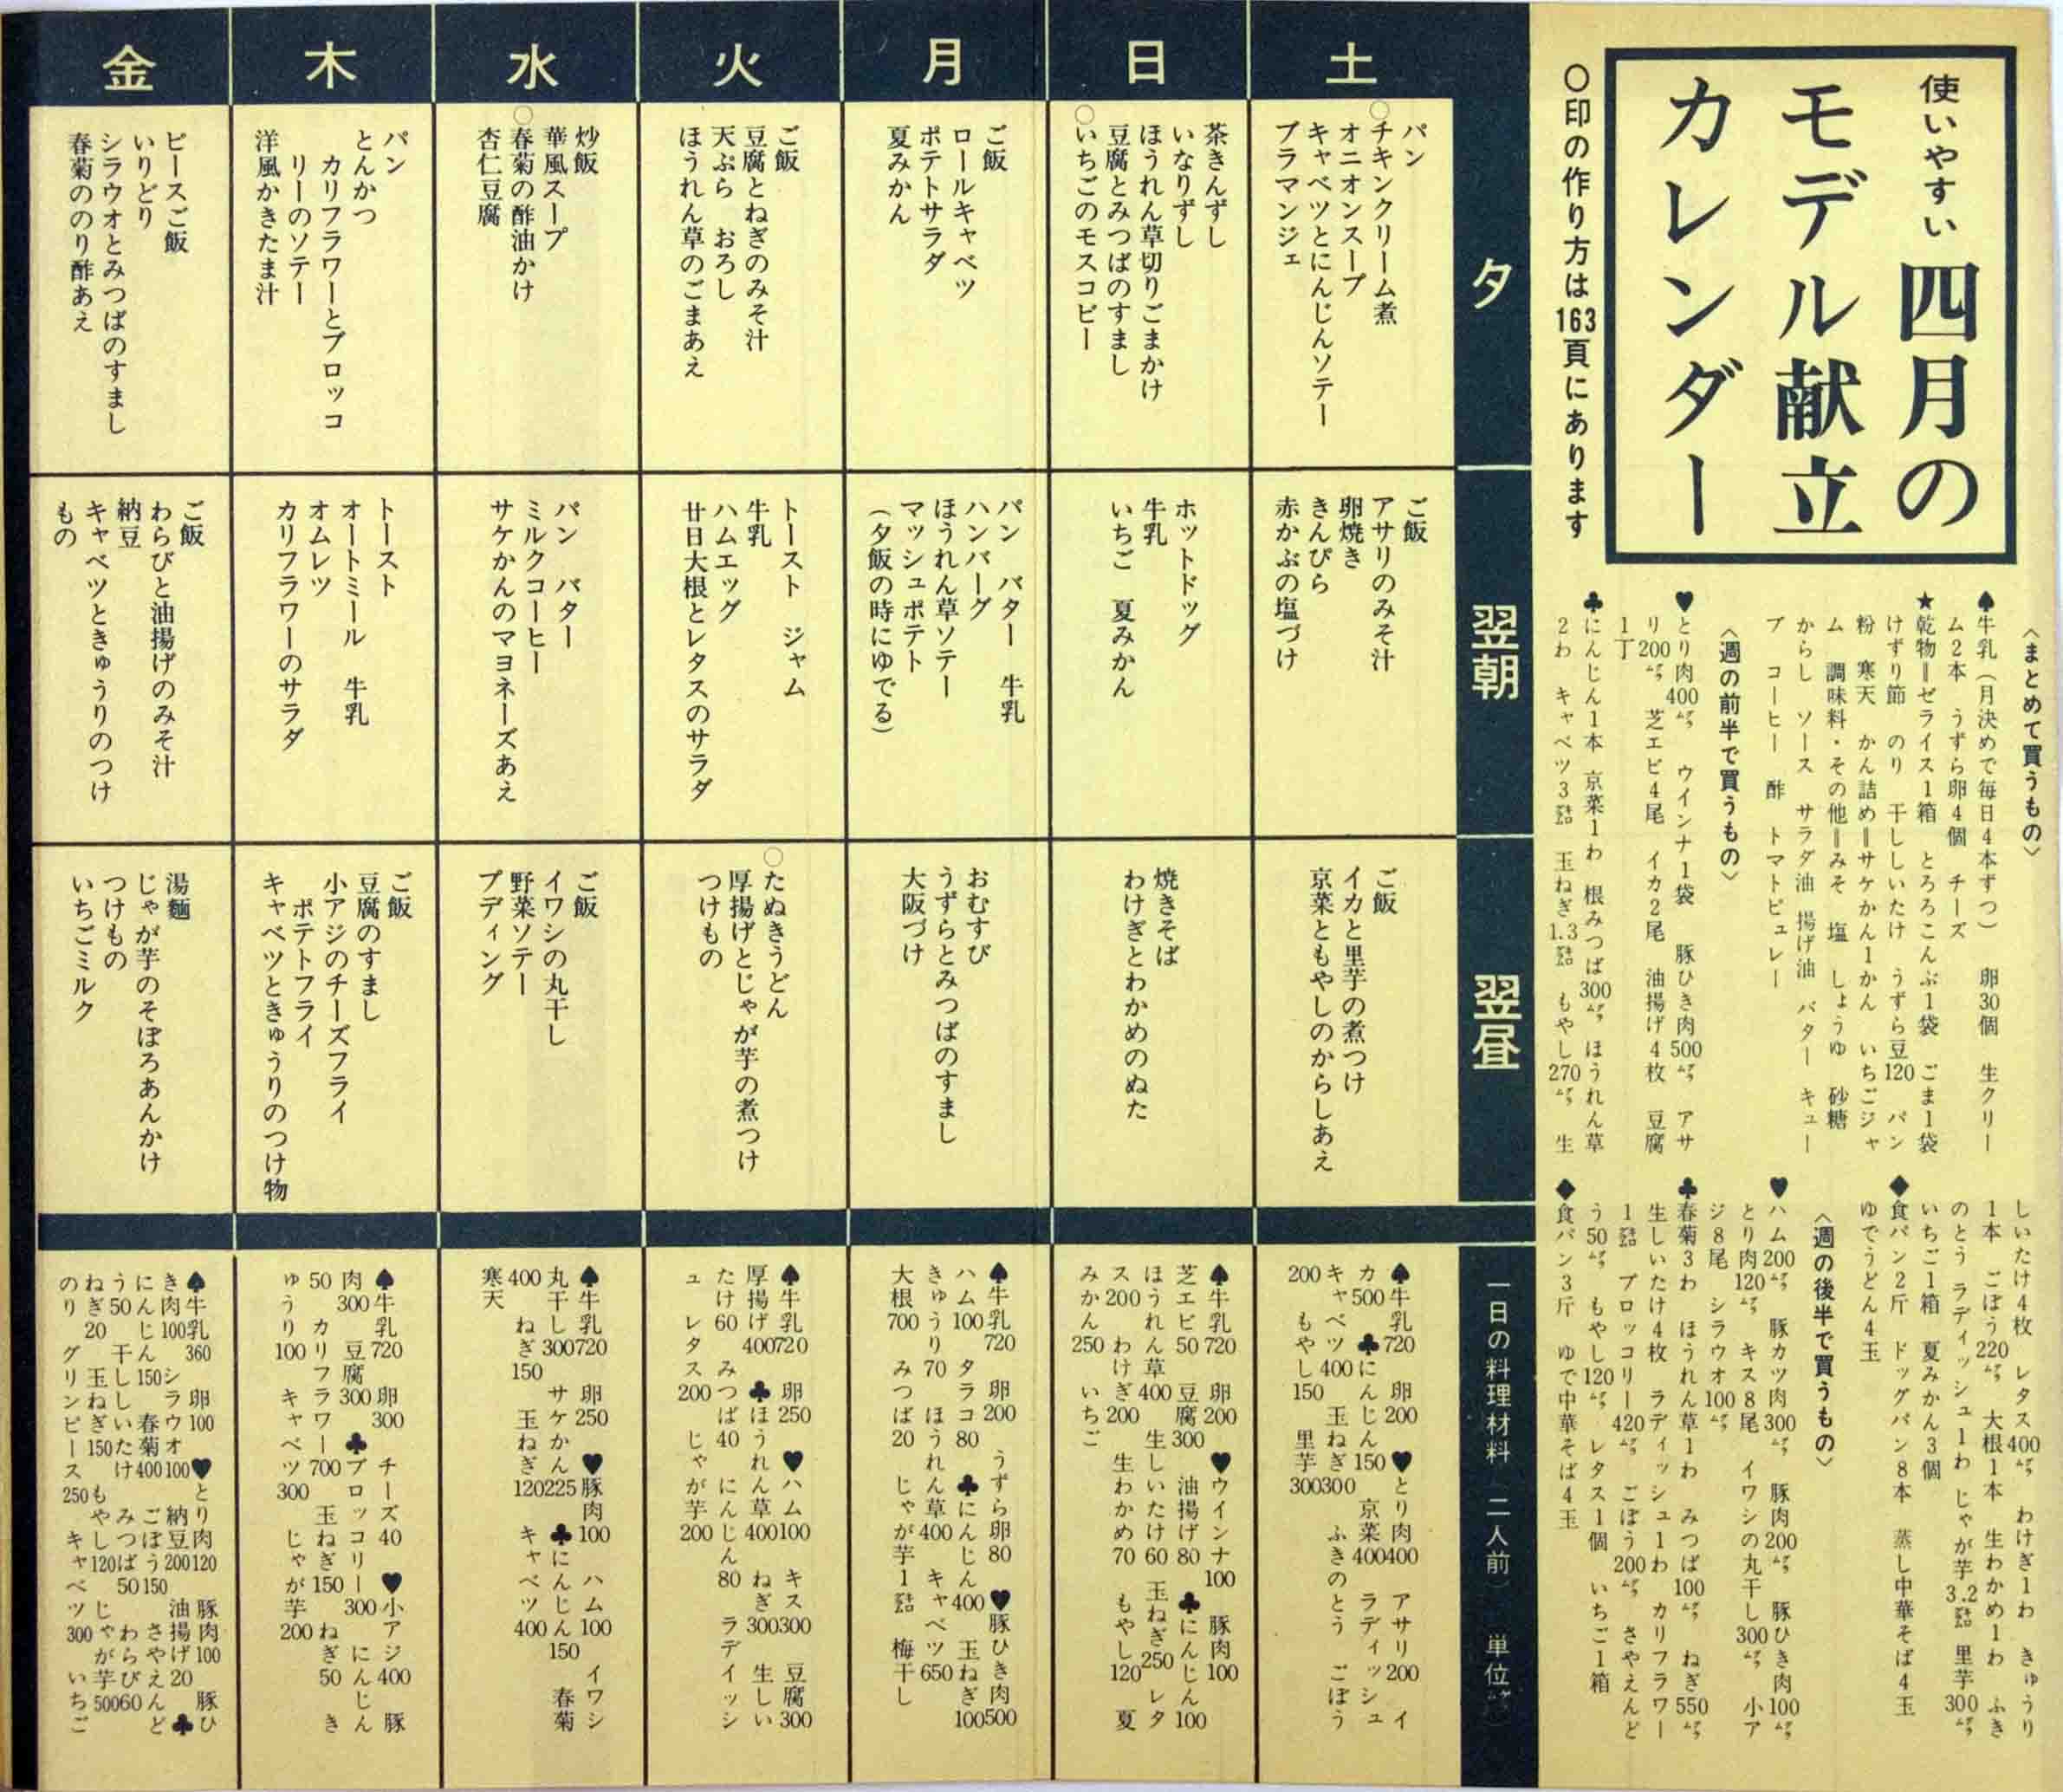 使いやすい 四月の
モデル献立
カレンダー
○印の作り方は163頁にあります
〈まとめて買うもの〉
♠牛乳(月決めで毎日4本ずつ) 卵30個 生クリー
ム2本 うずら卵4個 チーズ
★乾物=ゼライス1箱 とろろこんぶ1袋 ごま1袋
けずり節 のり 干ししいたけ うずら豆120 パン
粉 寒天 かん詰め=サケかん1かん いちごジャ
ム 調味料・その他=みそ 塩 しょうゆ 砂糖
からし ソース サラダ油 揚げ油 バター キュー
ブ コーヒー 酢 トマトピュレー
〈週の前半で買うもの〉
♥とり肉400㌘ ウインナ1袋 豚ひき肉500㌘ アサ
リ200㌘ 芝エビ4尾 イカ2尾 油揚げ4枚 豆腐
1丁
♣にんじん1本 京菜1わ 根みつば300㌘ ほうれん草
2わ キャベツ3㌔ 玉ねぎ1.3㌔ もやし270㌘ 生
しいたけ4枚 レタス400㌘ わけぎ1わ きゅうり
1本 ごぼう220㌘ 大根1本 生わかめ1わ ふき
のとう ラディッシュ1わ じゃが芋3.2㌔ 里芋300㌘
いちご1箱 夏みかん3個
◆食パン2斤 ドッグパン8本 蒸し中華そば4玉
ゆでうどん4玉
〈週の後半で買うもの〉
♥ハム200㌘ 豚カツ肉300㌘ 豚肉200㌘ 豚ひき肉100㌘
とり肉120㌘ キス8尾 イワシの丸干し300㌘ 小ア
ジ8尾 シラウオ100㌘
♣春菊3わ ほうれん草1わ みつば100㌘ ねぎ550㌘
生しいたけ4枚 ラディッシュ1わ カリフラワー
1㌔ ブロッコリー420㌘ ごぼう200㌘ さやえんど
う50㌘ もやし120㌘ レタス1個 いちご1箱
◆食パン3斤 ゆで中華そば4玉
夕
翌朝
翌昼
一日の料理材料(二人前) 単位㌘
土
パン
○チキンクリーム煮
オニオンスープ
キャベツとにんじんソテー
ブラマンジェ
ご飯
アサリのみそ汁
卵焼き
きんぴら
赤かぶの塩づけ
ご飯
イカと里芋の煮つけ
京菜ともやしのからしあえ
♠牛乳720 卵200 ♥とり肉400 アサリ200 イ
カ500 ♣にんじん150 京菜400 ラディッシュ
キャベツ400 玉ねぎ300 ふきのとう ごぼう
200 もやし150 里芋300
日
茶きんずし
いなりずし
ほうれん草切りごまかけ
豆腐とみつばのすまし
○いちごのモスコビー
ホットドッグ
牛乳
いちご 夏みかん
焼きそば
わけぎとわかめのぬた
♠牛乳720 卵200 ♥ウインナ100 豚肉100
芝エビ50 豆腐300 油揚げ80 ♣にんじん100
ほうれん草400 生しいたけ60 玉ねぎ250 レタ
ス200 わけぎ200 生わかめ70 もやし120 夏
みかん250 いちご
月
ご飯
ロールキャベツ
ポテトサラダ
夏みかん
パン バター 牛乳
ハンバーグ
ほうれん草ソテー
マッシュポテト
(夕飯の時にゆでる)
おむすび
うずらとみつばのすまし
大阪づけ
♠牛乳720 卵200 うずら卵80 ♥豚ひき肉500
ハム100 タラコ80 ♣にんじん400 玉ねぎ100
きゅうり70 ほうれん草400 キャベツ650
大根700 みつば20 じゃが芋1㌔ 梅干し
火
ご飯
豆腐とねぎのみそ汁
天ぷら おろし
ほうれん草のごまあえ
トースト ジャム
牛乳
ハムエッグ
廿日大根とレタスのサラダ
○たぬきうどん
厚揚げとじゃが芋の煮つけ
つけもの
♠牛乳720 卵250 ♥ハム100 キス300 豆腐300
厚揚げ400 ♣ほうれん草400 ねぎ300 生しい
たけ60 みつば40 にんじん80 ラディッシ
ュ レタス200 じゃが芋200
水
炒飯
華風スープ
○春菊の酢油かけ
杏仁豆腐
パン バター
ミルクコーヒー
サケかんのマヨネーズあえ
ご飯
イワシの丸干し
野菜ソテー
プディング
♠牛乳720 卵250 ♥豚肉100 ハム100 イワシ
丸干し300 サケかん225 ♣にんじん150 春菊
400 ねぎ150 玉ねぎ120 キャベツ400
寒天
木
パン
とんかつ
カリフラワーとブロッコ
リーのソテー
洋風かきたま汁
トースト
オートミール 牛乳
オムレツ
カリフラワーのサラダ
ご飯
豆腐のすまし
小アジのチーズフライ
ポテトフライ
キャベツときゅうりのつけ物
♠牛乳720 卵300 チーズ40 ♥小アジ400 豚
肉300 豆腐300 ♣ブロッコリー300 にんじん
50 カリフラワー700 玉ねぎ150 ねぎ50 き
ゅうり100 キャベツ300 じゃが芋200
金
ピースご飯
いりどり
シラウオとみつばのすまし
春菊ののり酢あえ
ご飯
わらびと油揚げのみそ汁
納豆
キャベツときゅうりのつけ
もの
湯麺
じゃが芋のそぼろあんかけ
つけもの
いちごミルク
♠牛乳360 卵100 ♥とり肉120 豚肉100 豚ひ
き肉100 シラウオ100 納豆200 油揚げ20 ♣
にんじん150 春菊400 ごぼう150 さやえんど
う50 干ししいたけ みつば50 わらび60
ねぎ20 玉ねぎ150 もやし120 じゃが芋500
のり グリンピース250 キャベツ300 いちご